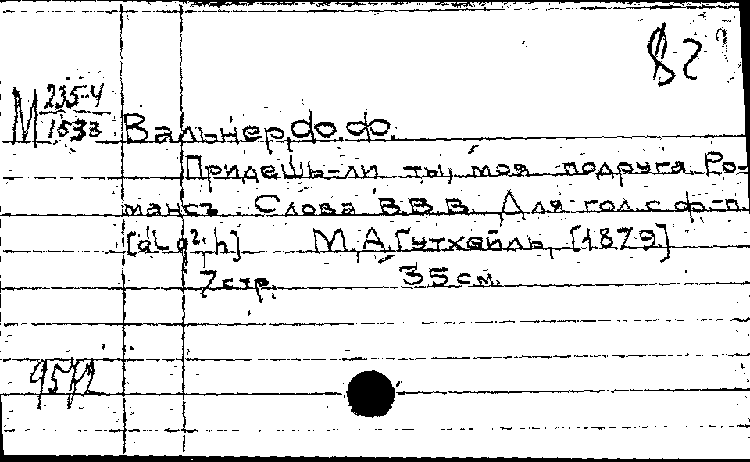 82
М 235-4
1533
Вальнер, Ф. Ф.
Придешь-ли ты, моя подруга. Ро-
мансъ. Слова В.В.В. Для гол. с ф.-п.
М., А. Гутхейль, [1879]
7 стр. 35 см.